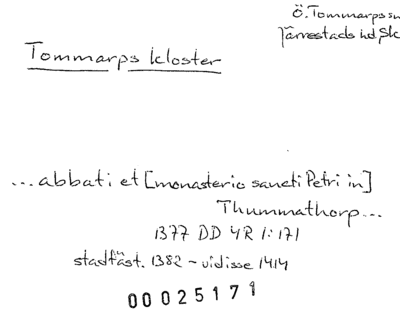 Ö. Tommarps sn
Järrestads hd Sk
Tommarps kloster
...abbati et [monasterio sancti Petri in]
Thummathorp...
1377 DD 4R 1:171
stadfäst. 1382 - vidisse 1414
00025171